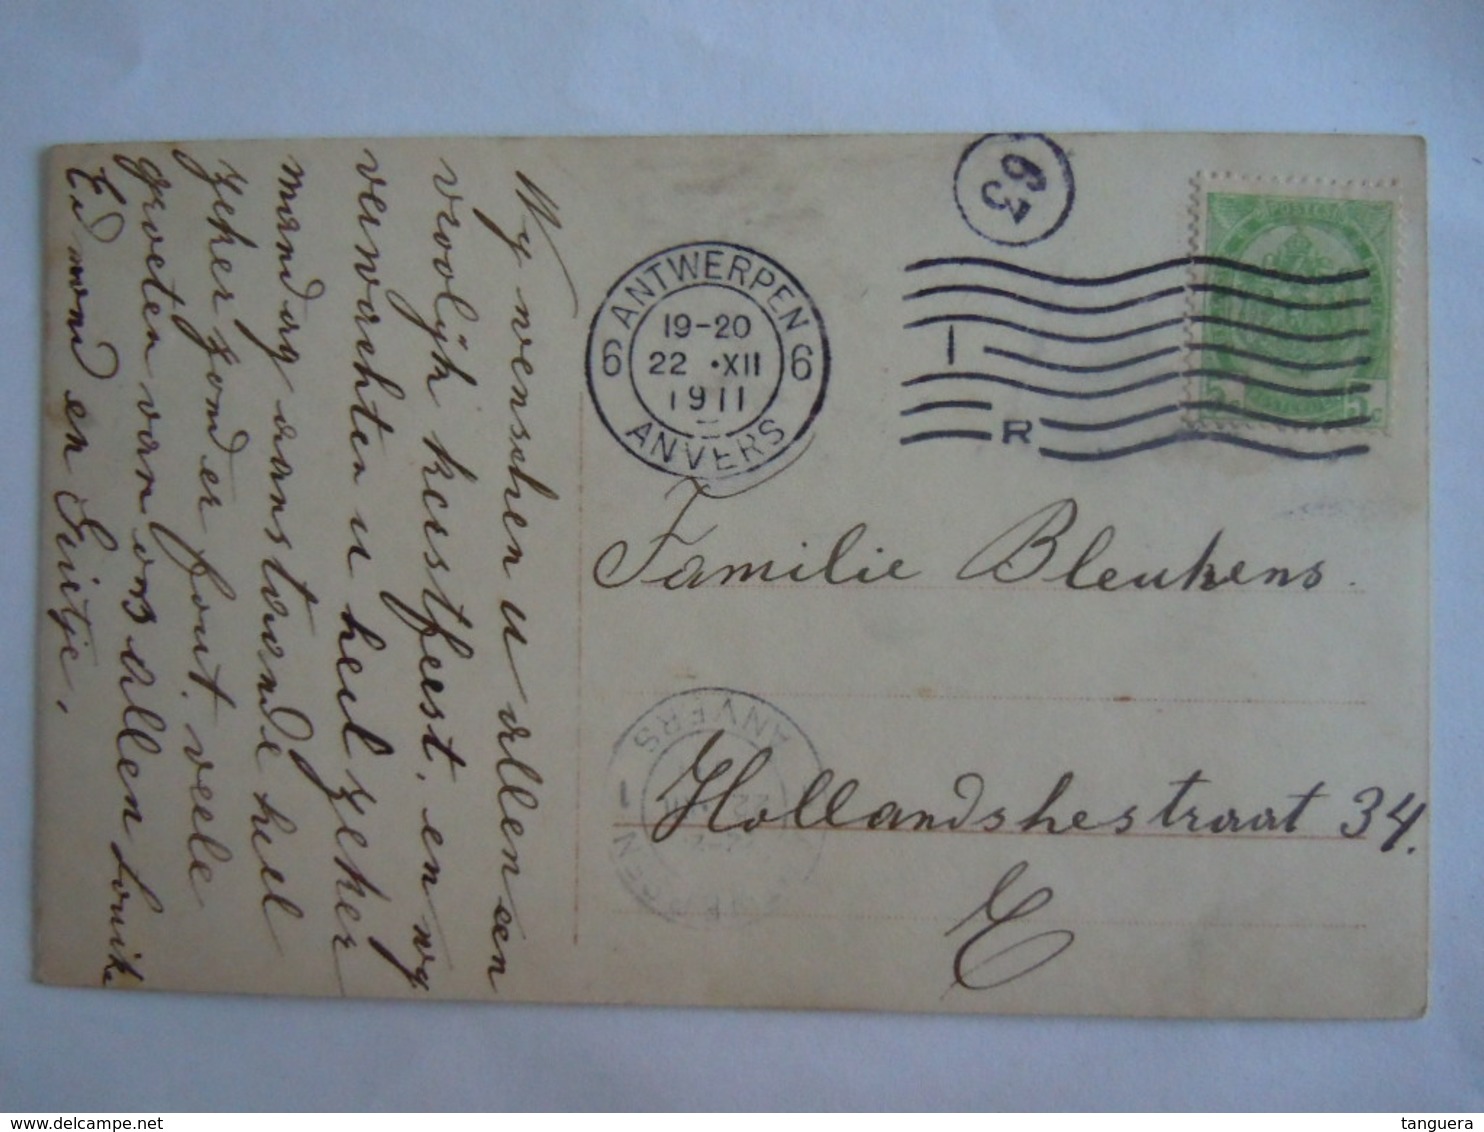 Wy wenschen u allen een
vroolijk kerstfeest, en wy
verwachten u heel zeker
maandag aanstaande heel
zeker zonder fout, veele
groeten van ons allen Louike
Edmond en Euitje,
63
ANTWERPEN
6 19-20 6
22 •XII
1911
ANVERS
1
R
5c
Familie Bleukens.
Hollandshestraat 34.
E
ANVERS
tanguera